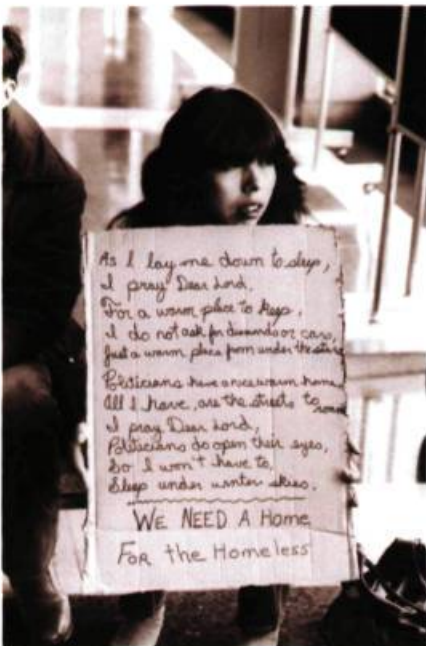 As I lay me down to sleep,
I pray Dear Lord,
For a warm place to keep,
I do not ask for diamonds or cars,
Just a warm place from under the stars
Politicians have a nice warm home,
All I have, are the streets to roam
I pray Dear Lord,
Politicians do open their eyes,
So I won't have to,
Sleep under winter skies.
WE NEED A Home
FOR the Homeless